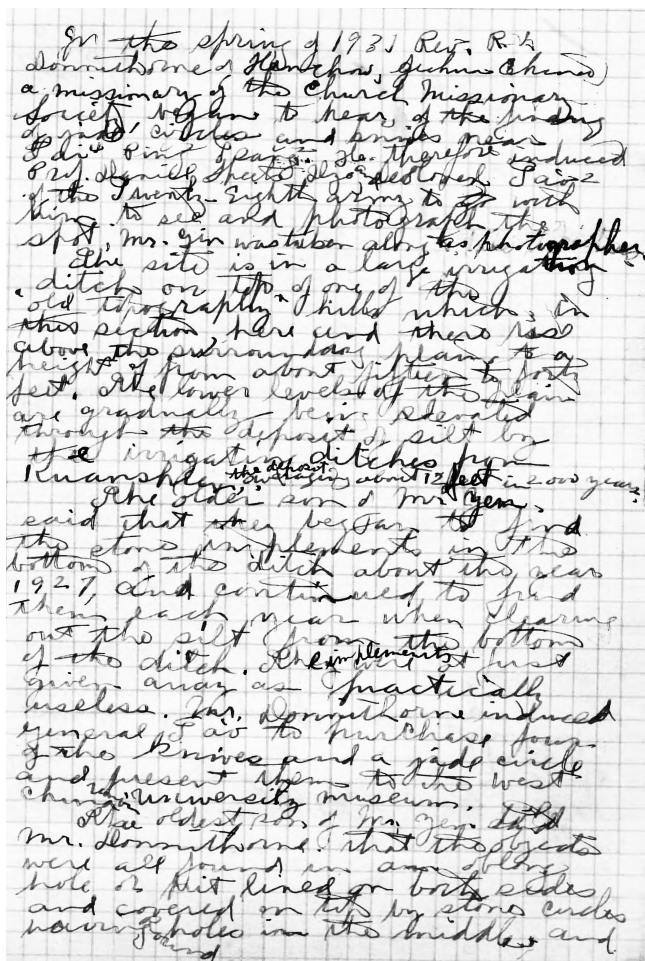 In the spring of 1931 Rev. R. V.
Donnithorne of Hanchow, Szchuan China,
a missionary of the Church Missionary
Society began to hear of the finding
of jade circles and knives near
Ping He therefore induced
Prof. Daniell Sheets Dye Colonel T'ao
of the Twenty-Eighth army to go with
him to see and photograph the
spot, Mr. Gin was taken along as photographer.
The site is in a large irrigation
ditch on top of one of the
"old topography" hills which, in
this section, here and there rise
above the surrounding plain to a
height of from about fifteen to forty
feet. The lower levels of the plain
are gradually being elevated
through the deposit of silt by
the irrigation ditches from
Kuanshien, the deposit averaging about 12 feet in 2000 years.
The older son of Mr. Yen
said that they began to find
the stone implements in the
bottom of the ditch about the year
1927, and continued to find
them each year when clearing
out the silt from the bottom
of the ditch. The implements were at first
given away as practically
useless. Mr. Donnithorne induced
General T'ao to purchase four
of the knives and a jade circle
and present them to the West
China Union University museum.
The oldest son of Mr. Yen told
Mr. Donnithorne that the objects
were all found in an oblong
hole or pit lined on both sides
and covered on top by stone circles
having round holes in the middle, and